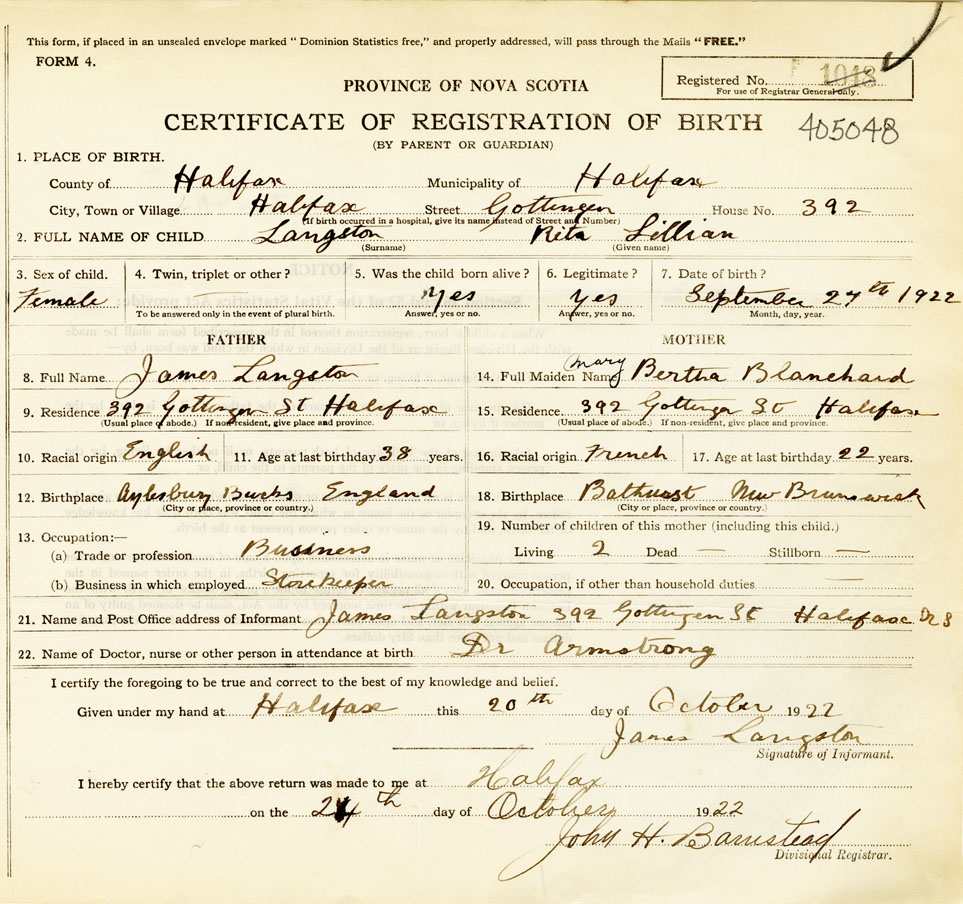 This form, if placed in an unsealed envelope marked “Dominion Statistics free,” and properly addressed, will pass through the Mails “FREE.”
FORM 4.
Registered No. 1013
For use of Registrar General only.
PROVINCE OF NOVA SCOTIA
CERTIFICATE OF REGISTRATION OF BIRTH 405048
(BY PARENT OR GUARDIAN)
1. PLACE OF BIRTH.
County of Halifax Municipality of Halifax
City, Town or Village Halifax Street Gottingen House No. 392
(If birth occurred in a hospital, give its name instead of Street and Number)
2. FULL NAME OF CHILD Langston Rita Lillian
(Surname) (Given name)
3. Sex of child. 4. Twin, triplet or other? 5. Was the child born alive? 6. Legitimate? 7. Date of birth?
Female — Yes Yes September 27th 1922
To be answered only in the event of plural birth. Answer, yes or no. Answer, yes or no. Month, day, year.
FATHER MOTHER
8. Full Name James Langston 14. Full Maiden Name Mary Bertha Blanchard
9. Residence 392 Gottingen St Halifax 15. Residence. 392 Gottingen St Halifax
(Usual place of abode.) If non-resident, give place and province. (Usual place of abode.) If non-resident, give place and province.
10. Racial origin English 11. Age at last birthday 38 years. 16. Racial origin French 17. Age at last birthday 22 years.
12. Birthplace Aylesbury Bucks England 18. Birthplace Bathurst New Brunswick
(City or place, province or country.) (City or place, province or country.)
13. Occupation:— 19. Number of children of this mother (including this child.)
(a) Trade or profession Business Living 2 Dead — Stillborn —
(b) Business in which employed Storekeeper 20. Occupation, if other than household duties —
21. Name and Post Office address of Informant James Langston 392 Gottingen St Halifax
22. Name of Doctor, nurse or other person in attendance at birth Dr Armstrong
I certify the foregoing to be true and correct to the best of my knowledge and belief.
Given under my hand at Halifax this 20th day of October 1922
James Langston
Signature of Informant.
I hereby certify that the above return was made to me at Halifax
on the 24th day of October 1922
John H. Barnstead
Divisional Registrar.